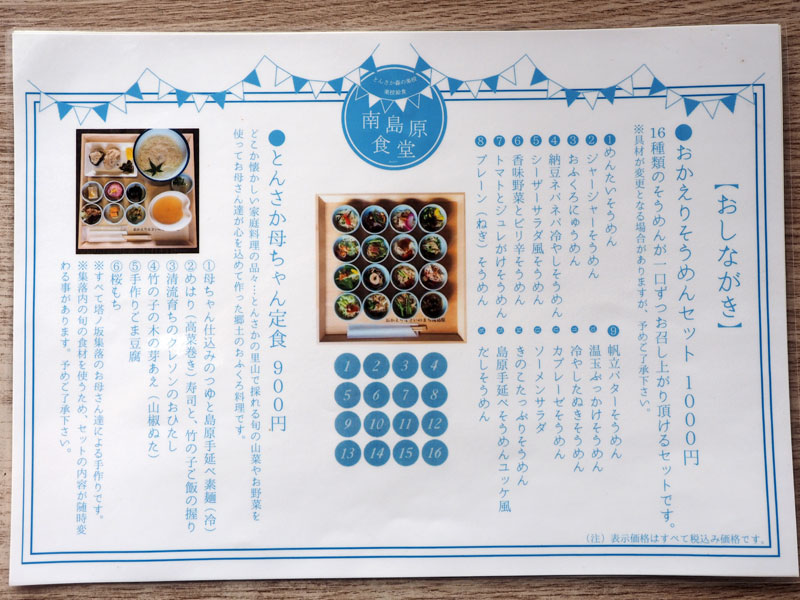 【おしながき】
●おかえりそうめんセット 1000円
16種類のそうめんが一口ずつお召し上がり頂けるセットです。
※具材が変更となる場合がありますが、予めご了承下さい。
①めんたいそうめん
②ジャージャーそうめん
③おふくろにゅうめん
④納豆ネバネバ冷やしそうめん
⑤シーザーサラダ風そうめん
⑥香味野菜とピリ辛そうめん
⑦トマトとジュレがけそうめん
⑧プレーン（ねぎ）そうめん
⑨帆立バターそうめん
温玉ぶっかけそうめん
冷やしたぬきそうめん
カプレーゼそうめん
ソーメンサラダ
きのこたっぷりそうめん
島原手延べそうめんユッケ風
だしそうめん
（注）表示価格はすべて税込み価格です。
南島原
食堂
1 2 3 4
5 6 7 8
9 10 11 12
13 14 15 16
●とんさか母ちゃん定食 900円
どこか懐かしい家庭料理の品々…とんさかの里山で採れる旬の山菜やお野菜を
使ってお母さん達が心を込めて作った郷土のおふくろ料理です。
①母ちゃん仕込みのつゆと島原手延べ素麺（冷）
②めはり（高菜巻き）寿司と、竹の子ご飯の握り
③清流育ちのクレソンのおひたし
④竹の子の木の芽あえ（山椒ぬた）
⑤手作りごま豆腐
⑥桜もち
※すべて塔ノ坂集落のお母さん達による手作りです。
※集落内の旬の食材を使うため、セットの内容が随時変
わる事があります。予めご了承下さい。